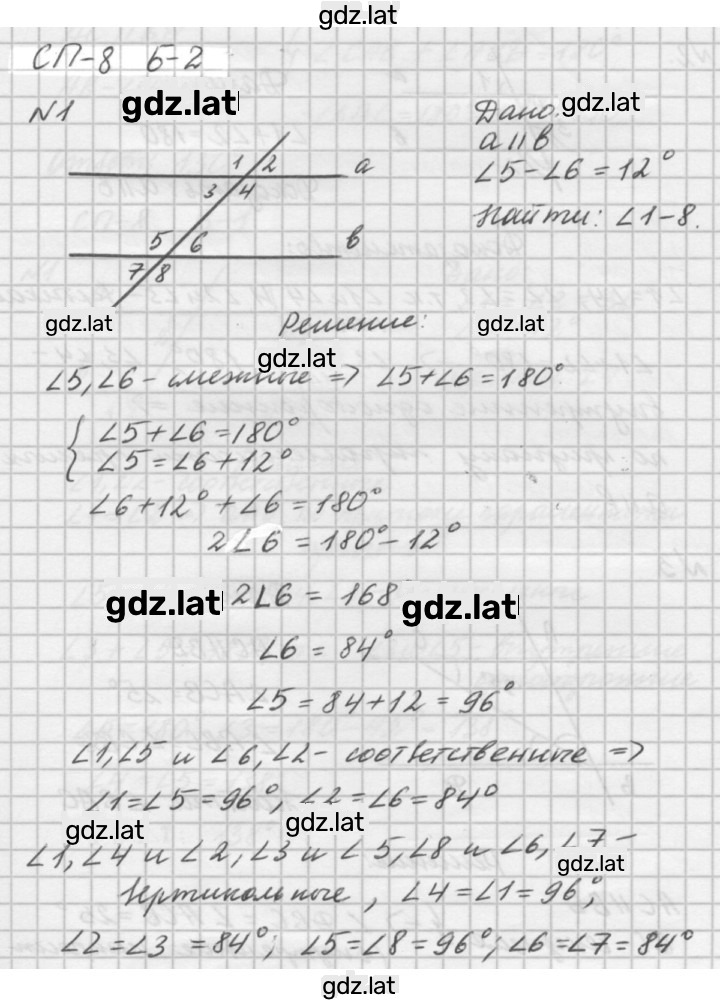 gdz.lat
СП-8 Б-2
№1
gdz.lat
Дано: gdz.lat
a || в
∠5-∠6=12°
Найти: ∠1-8.
1 2 a
3 4
5 6 в
7 8
gdz.lat
gdz.lat
Решение:
gdz.lat
∠5, ∠6 - смежные => ∠5+∠6=180°
{ ∠5+∠6=180°
∠5=∠6+12°
∠6+12°+∠6=180°
2∠6=180°-12°
gdz.lat 2∠6 = 168 gdz.lat
∠6 = 84°
∠5 = 84+12 = 96°
∠1, ∠5 и ∠6, ∠2 - соответственные =>
∠1=∠5=96°, ∠2=∠6=84°
gdz.lat gdz.lat
∠1, ∠4 и ∠2, ∠3 и ∠5, ∠8 и ∠6, ∠7 -
gdz.lat
вертикальные, ∠4=∠1=96°;
∠2=∠3 =84°; ∠5=∠8=96°; ∠6=∠7=84°
gdz.lat